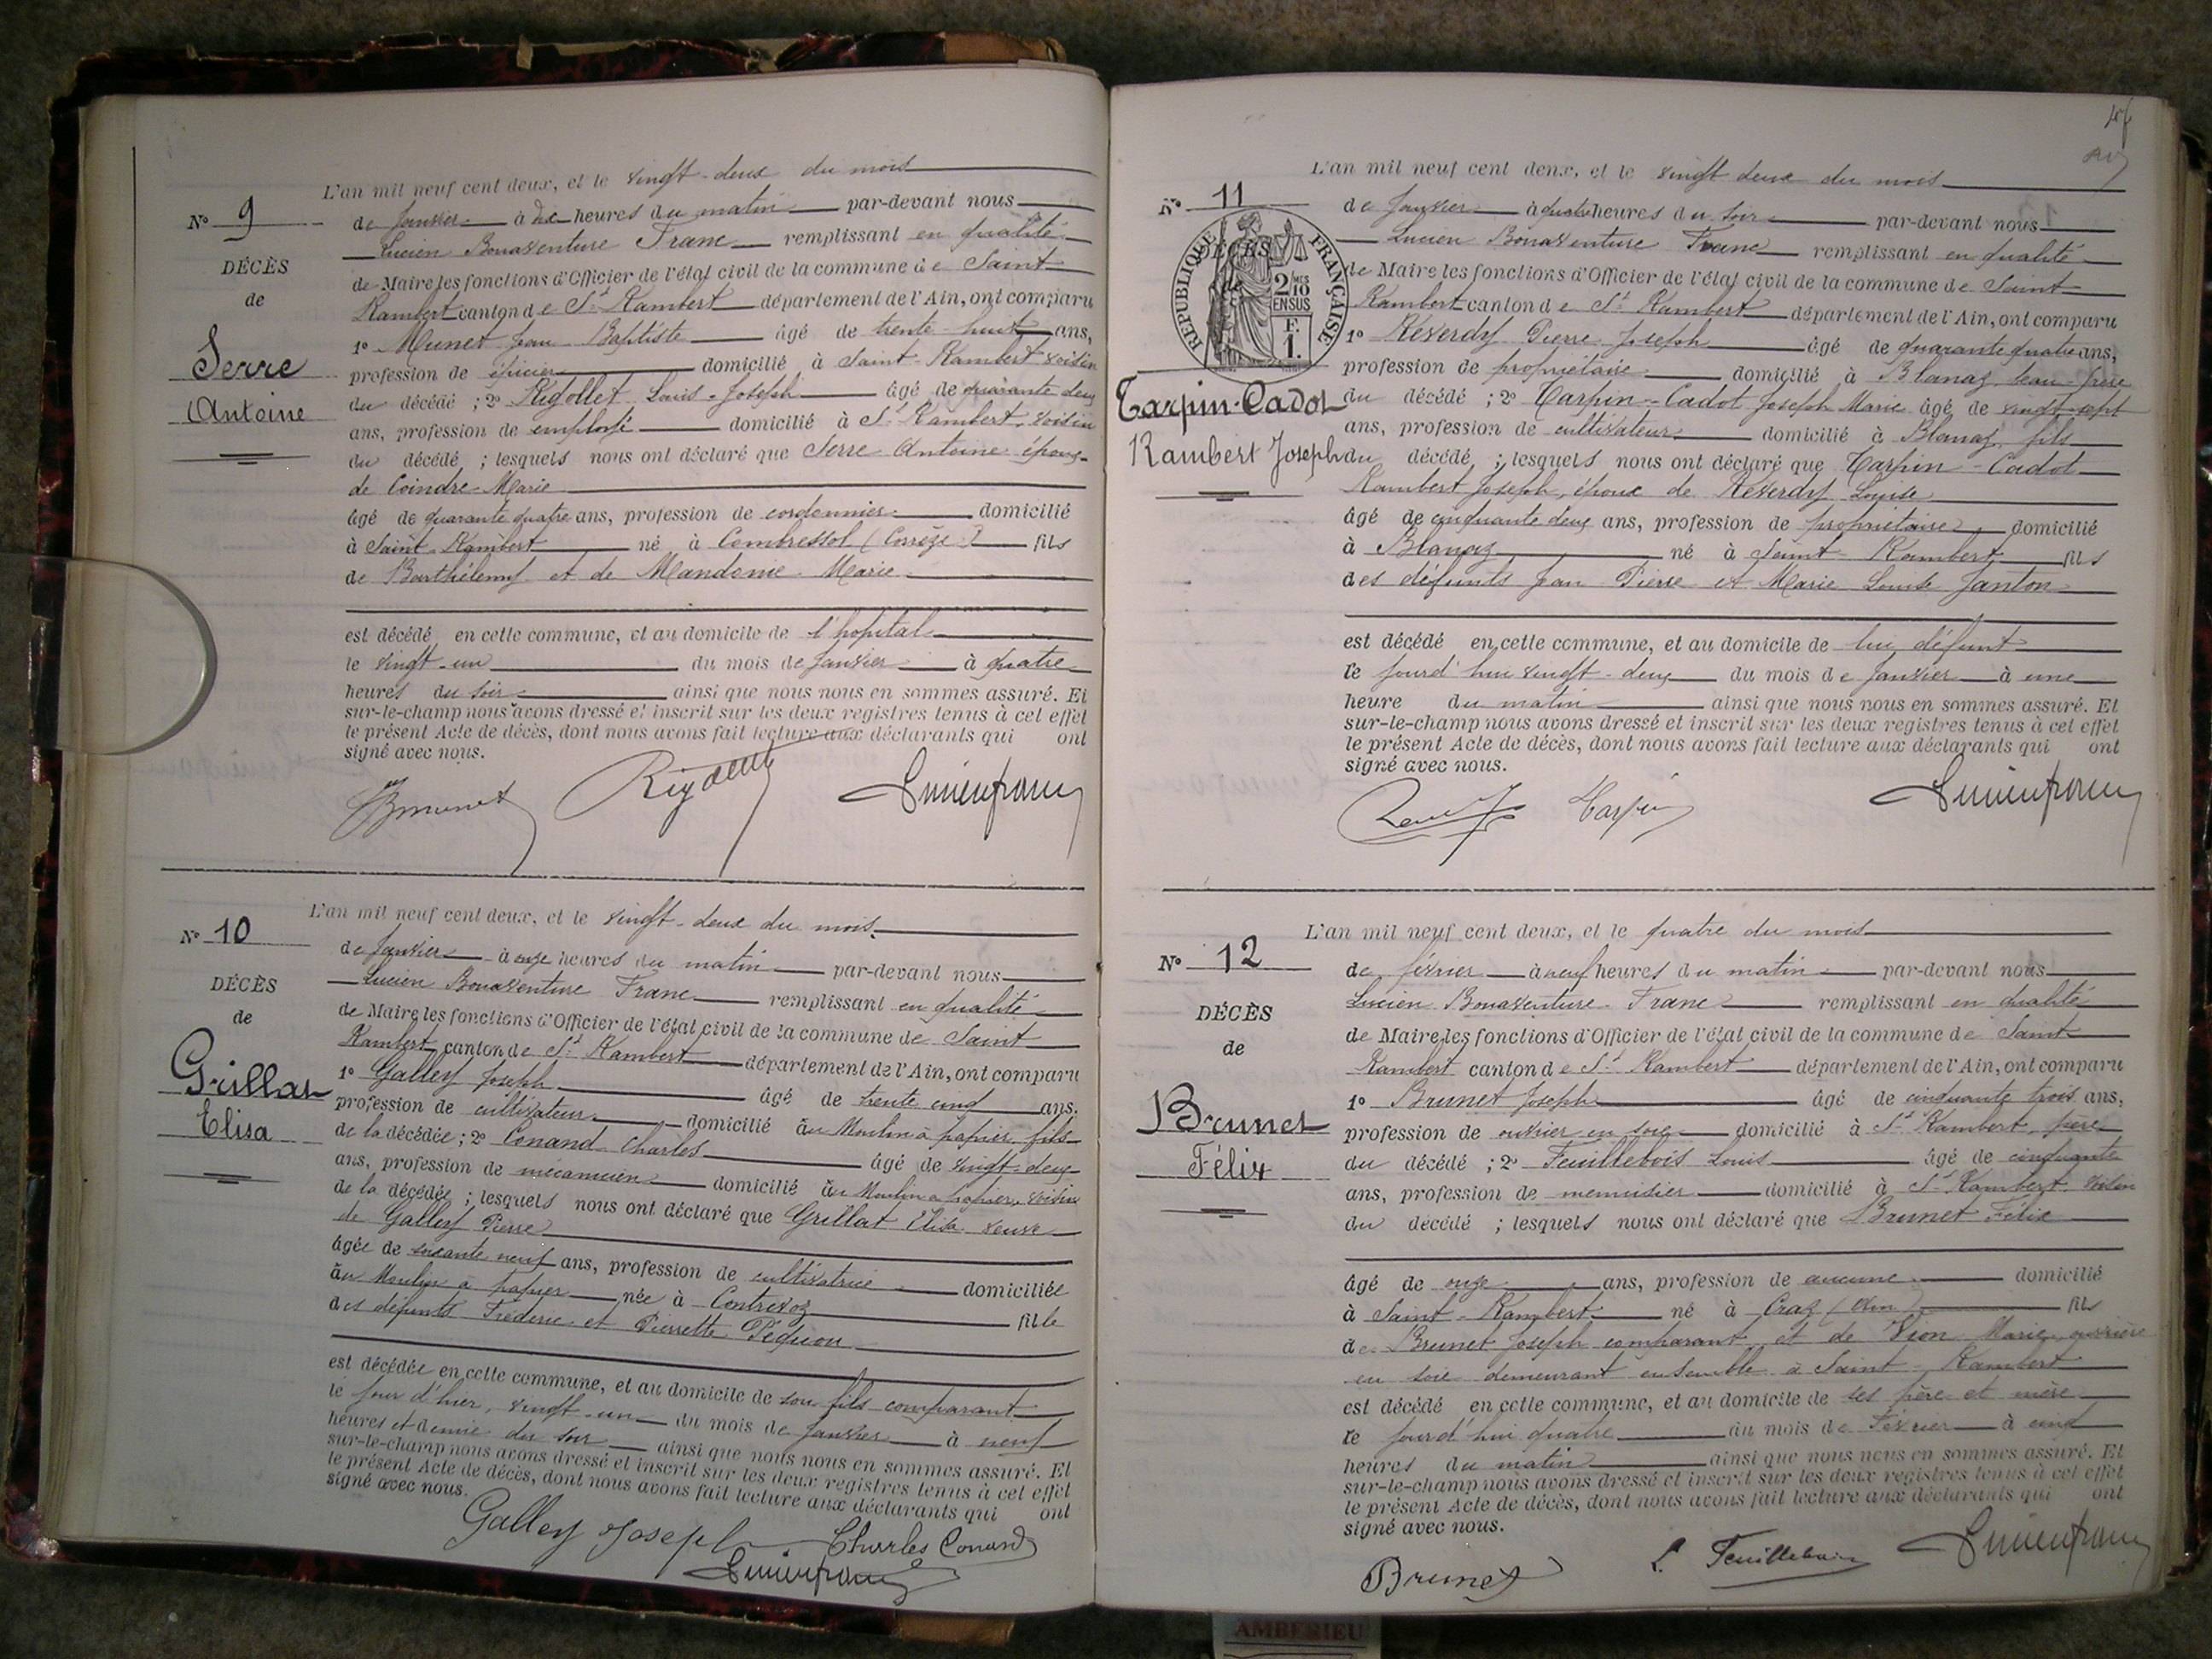 N° 9
DÉCÈS
de
Serre
Antoine
L'an mil neuf cent deux, et le vingt-deux du mois
de Janvier à dix heures du matin par-devant nous
Lucien Bonaventure Franc remplissant en qualité
de Maire les fonctions d'Officier de l'état civil de la commune de Saint
Rambert canton de St Rambert département de l'Ain, ont comparu
1° Munet Jean Baptiste âgé de trente-huit ans,
profession de épicier domicilié à Saint-Rambert voisin
du décédé ; 2° Rigollet Louis-Joseph âgé de quarante deux
ans, profession de employé domicilié à St Rambert, voisin
du décédé ; lesquels nous ont déclaré que Serre Antoine époux
de Coindre Marie
âgé de quarante quatre ans, profession de cordonnier domicilié
à Saint-Rambert né à Combressol (Corrèze) fils
de Barthélemy et de Mandonne Marie
est décédé en cette commune, et au domicile de l'hopital
le vingt-un du mois de Janvier à quatre
heures du soir ainsi que nous nous en sommes assuré. Et
sur-le-champ nous avons dressé et inscrit sur les deux registres tenus à cet effet
le présent Acte de décès, dont nous avons fait lecture aux déclarants qui ont
signé avec nous.
Lucien franc
N° 10
DÉCÈS
de
Grillat
Elisa
L'an mil neuf cent deux, et le vingt-deux du mois
de Janvier à onze heures du matin par-devant nous
Lucien Bonaventure Franc remplissant en qualité
de Maire les fonctions d'Officier de l'état civil de la commune de Saint
Rambert canton de St Rambert département de l'Ain, ont comparu
1° Galley Joseph âgé de trente cinq ans,
profession de cultivateur domicilié au Moulin à papier fils
de la décédée ; 2° Conand Charles âgé de vingt-deux
ans, profession de mécanicien domicilié au Moulin à papier, voisin
de la décédée ; lesquels nous ont déclaré que Grillat Elisa veuve
de Galley Pierre
âgée de soixante neuf ans, profession de cultivatrice domiciliée
au Moulin à papier née à Contrevoz fille
des défunts Fréderic et Pierrette Péquou
est décédée en cette commune, et au domicile de son fils comparant
le jour d'hier, vingt-un du mois de Janvier à neuf
heures et demie du soir ainsi que nous nous en sommes assuré. Et
sur-le-champ nous avons dressé et inscrit sur les deux registres tenus à cet effet
le présent Acte de décès, dont nous avons fait lecture aux déclarants qui ont
signé avec nous.
Galley Joseph Charles Conand
Lucien franc
N° 11
DÉCÈS
RÉPUBLIQUE FRANÇAISE
2/10 EN SUS
F.
1.
Tarpin-Cadot
Rambert Joseph
L'an mil neuf cent deux, et le vingt deux du mois
de Janvier à quatre heures du soir par-devant nous
Lucien Bonaventure Franc remplissant en qualité
de Maire les fonctions d'Officier de l'état civil de la commune de Saint
Rambert canton de St Rambert département de l'Ain, ont comparu
1° Reverdy Pierre Joseph âgé de quarante quatre ans,
profession de propriétaire domicilié à Blanaz, beau-frère
du décédé ; 2° Tarpin-Cadot Joseph Marie âgé de vingt-sept
ans, profession de cultivateur domicilié à Blanaz, fils
du décédé ; lesquels nous ont déclaré que Tarpin-Cadot
Rambert Joseph, époux de Reverdy Louise
âgé de cinquante deux ans, profession de propriétaire domicilié
à Blanaz né à Saint-Rambert fils
des défunts Jean Pierre et Marie Louise Janton
est décédé en cette commune, et au domicile de lui défunt
le jourd'hui vingt-deux du mois de Janvier à une
heure du matin ainsi que nous nous en sommes assuré. Et
sur-le-champ nous avons dressé et inscrit sur les deux registres tenus à cet effet
le présent Acte de décès, dont nous avons fait lecture aux déclarants qui ont
signé avec nous.
Tarpin Lucien franc
N° 12
DÉCÈS
de
Brunet
Félix
L'an mil neuf cent deux, et le quatre du mois
de février à neuf heures du matin par-devant nous
Lucien Bonaventure Franc remplissant en qualité
de Maire les fonctions d'Officier de l'état civil de la commune de Saint
Rambert canton de St Rambert département de l'Ain, ont comparu
1° Brunet Joseph âgé de cinquante trois ans,
profession de ouvrier en soie domicilié à St Rambert, père
du décédé ; 2° Feuillebois Louis âgé de cinquante
ans, profession de menuisier domicilié à St Rambert, voisin
du décédé ; lesquels nous ont déclaré que Brunet Félix
âgé de onze ans, profession de aucune domicilié
à Saint-Rambert né à Craz (Ain) fils
de Brunet Joseph comparant et de Vion Marie ouvrière
en soie demeurant ensemble à Saint-Rambert
est décédé en cette commune, et au domicile de ses père et mère
le jourd'hui quatre du mois de Février à cinq
heures du matin ainsi que nous nous en sommes assuré. Et
sur-le-champ nous avons dressé et inscrit sur les deux registres tenus à cet effet
le présent Acte de décès, dont nous avons fait lecture aux déclarants qui ont
signé avec nous.
Brunet L. Feuillebois Lucien franc
AMBERIEU